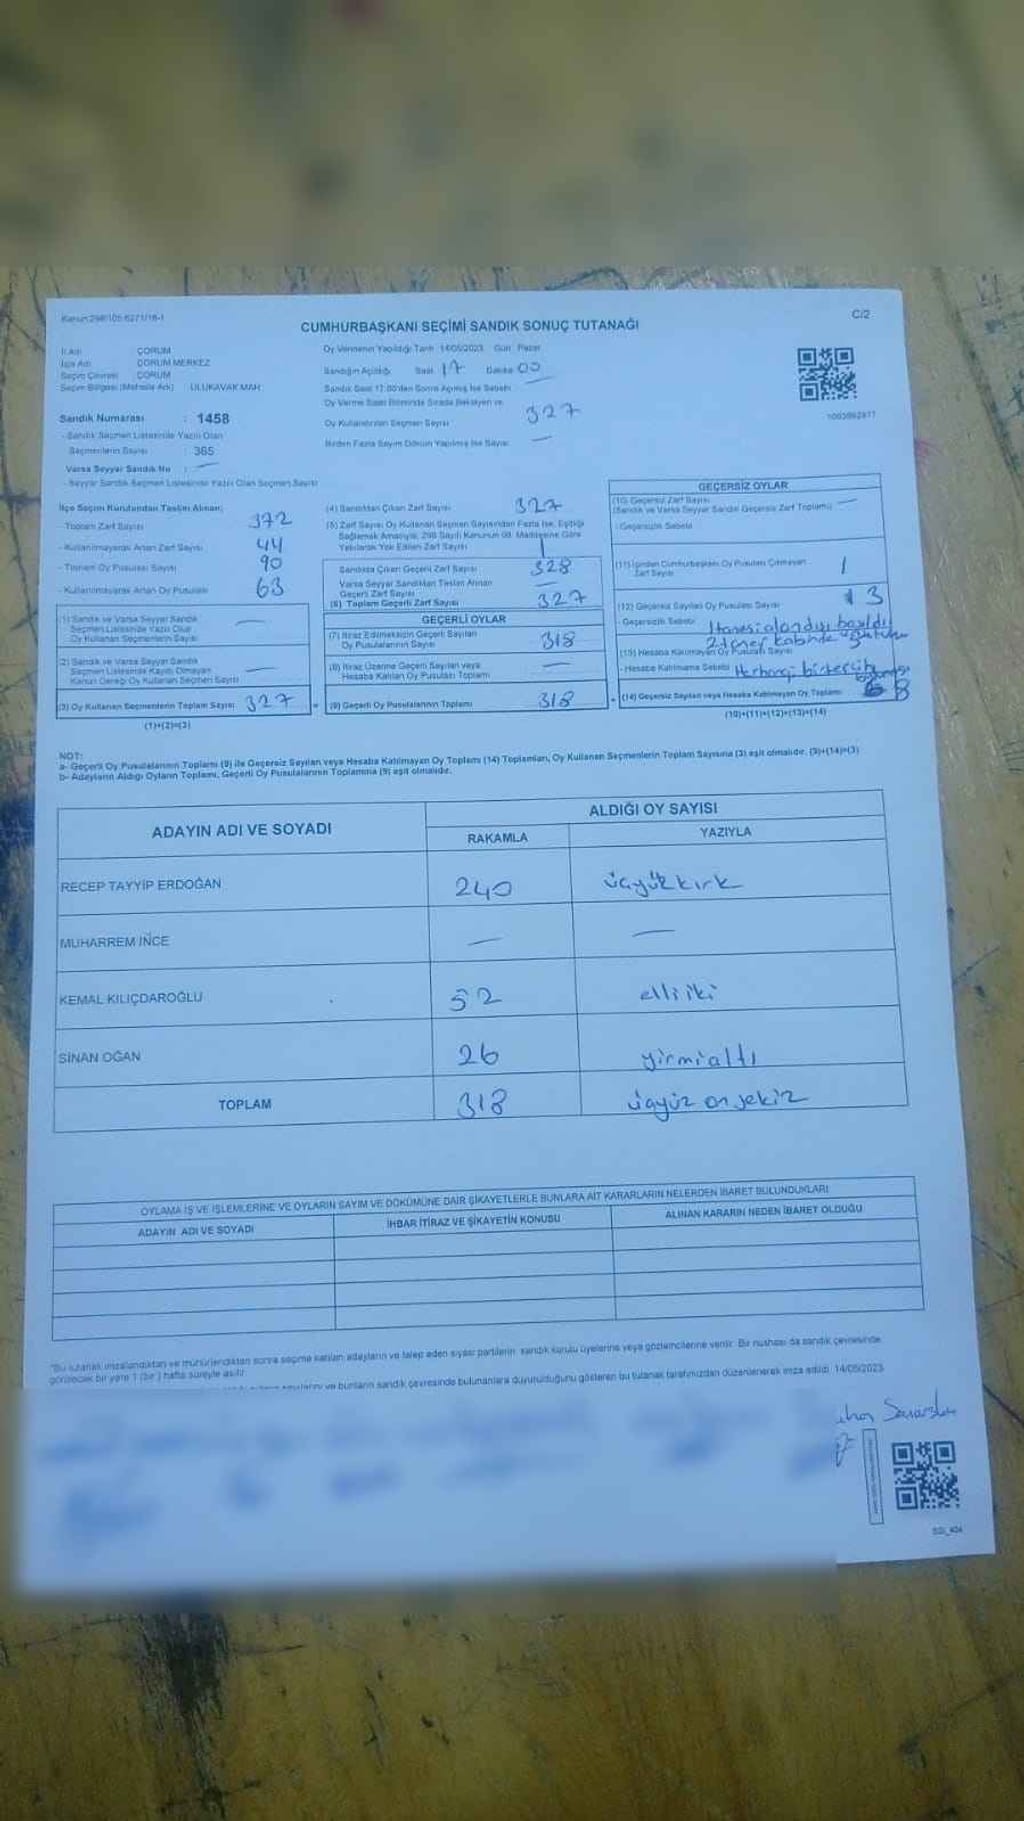 Kanun:298/105 6271/16-1
C/2
CUMHURBAŞKANI SEÇİMİ SANDIK SONUÇ TUTANAĞI
İl Adı ÇORUM
İlçe Adı ÇORUM MERKEZ
Seçim Çevresi ÇORUM
Seçim Bölgesi (Mahalle Adı) ULUKAVAK MAH.
Sandık Numarası : 1458
- Sandık Seçmen Listesinde Yazılı Olan
Seçmenlerin Sayısı : 365
Varsa Seyyar Sandık No : —
- Seyyar Sandık Seçmen Listesinde Yazılı Olan Seçmen Sayısı
Oy Vermenin Yapıldığı Tarih 14/05/2023 Gün Pazar
Sandığın Açıldığı Saat 17 Dakika 00
Sandık Saat 17:00'den Sonra Açılmış İse Sebebi
Oy Verme Saati Bitiminde Sırada Bekleyen ve
Oy Kullandırılan Seçmen Sayısı 327
Birden Fazla Sayım Döküm Yapılmış İse Sayısı —
İlçe Seçim Kurulundan Teslim Alınan;
- Toplam Zarf Sayısı 372
- Kullanılmayarak Artan Zarf Sayısı 44
- Toplam Oy Pusulası Sayısı 90
- Kullanılmayarak Artan Oy Pusulası 63
(1) Sandık ve Varsa Seyyar Sandık
Seçmen Listesinde Yazılı Olup
Oy Kullanan Seçmenlerin Sayısı —
(2) Sandık ve Varsa Seyyar Sandık
Seçmen Listesinde Kaydı Olmayan
Kanun Gereği Oy Kullanan Seçmen Sayısı —
(3) Oy Kullanan Seçmenlerin Toplam Sayısı 327
(1)+(2)=(3)
(4) Sandıktan Çıkan Zarf Sayısı 327
(5) Zarf Sayısı Oy Kullanan Seçmen Sayısından Fazla İse, Eşitliği
Sağlamak Amacıyla, 298 Sayılı Kanunun 98. Maddesine Göre
Yakılarak Yok Edilen Zarf Sayısı 1
Sandıkta Çıkan Geçerli Zarf Sayısı 328
Varsa Seyyar Sandıktan Teslim Alınan
Geçerli Zarf Sayısı —
(6) Toplam Geçerli Zarf Sayısı 327
GEÇERLİ OYLAR
(7) İtiraz Edilmeksizin Geçerli Sayılan
Oy Pusulalarının Sayısı 318
(8) İtiraz Üzerine Geçerli Sayılan veya
Hesaba Katılan Oy Pusulası Toplamı —
(9) Geçerli Oy Pusulalarının Toplamı 318
GEÇERSİZ OYLAR
(10) Geçersiz Zarf Sayısı
(Sandık ve Varsa Seyyar Sandık Geçersiz Zarf Toplamı) —
- Geçersizlik Sebebi
(11) İçinden Cumhurbaşkanı Oy Pusulası Çıkmayan
Zarf Sayısı 1
(12) Geçersiz Sayılan Oy Pusulası Sayısı 3
- Geçersizlik Sebebi
(13) Hesaba Katılmayan Oy Pusulası Sayısı
- Hesaba Katılmama Sebebi
(14) Geçersiz Sayılan veya Hesaba Katılmayan Oy. Toplamı 8
(10)+(11)+(12)+(13)=(14)
NOT:
a- Geçerli Oy Pusulalarının Toplamı (9) ile Geçersiz Sayılan veya Hesaba Katılmayan Oy Toplamı (14) Toplamları, Oy Kullanan Seçmenlerin Toplam Sayısına (3) eşit olmalıdır. (9)+(14)=(3)
b- Adayların Aldığı Oyların Toplamı, Geçerli Oy Pusulalarının Toplamına (9) eşit olmalıdır.
ADAYIN ADI VE SOYADI
ALDIĞI OY SAYISI
RAKAMLA YAZIYLA
RECEP TAYYİP ERDOĞAN 240
MUHARREM İNCE — —
KEMAL KILIÇDAROĞLU 52 elliiki
SİNAN OĞAN 26 yirmialtı
TOPLAM 318 üçyüz onsekiz
OYLAMA İŞ VE İŞLEMLERİNE VE OYLARIN SAYIM VE DÖKÜMÜNE DAİR ŞİKAYETLERLE BUNLARA AİT KARARLARIN NELERDEN İBARET BULUNDUKLARI
ADAYIN ADI VE SOYADI İHBAR İTİRAZ VE ŞİKAYETİN KONUSU ALINAN KARARIN NEDEN İBARET OLDUĞU
"Bu tutanak imzalandıktan ve mühürlendikten sonra seçime katılan adayların ve talep eden siyasi partilerin sandık kurulu üyelerine veya gözlemcilerine verilir. Bir nüshası da sandık çevresinde
görülecek bir yere 1 (bir) hafta süreyle asılır.
ve bunların sandık çevresinde bulunanlara duyurulduğunu gösteren bu tutanak tarafımızdan düzenlenerek imza edildi. 14/05/2023